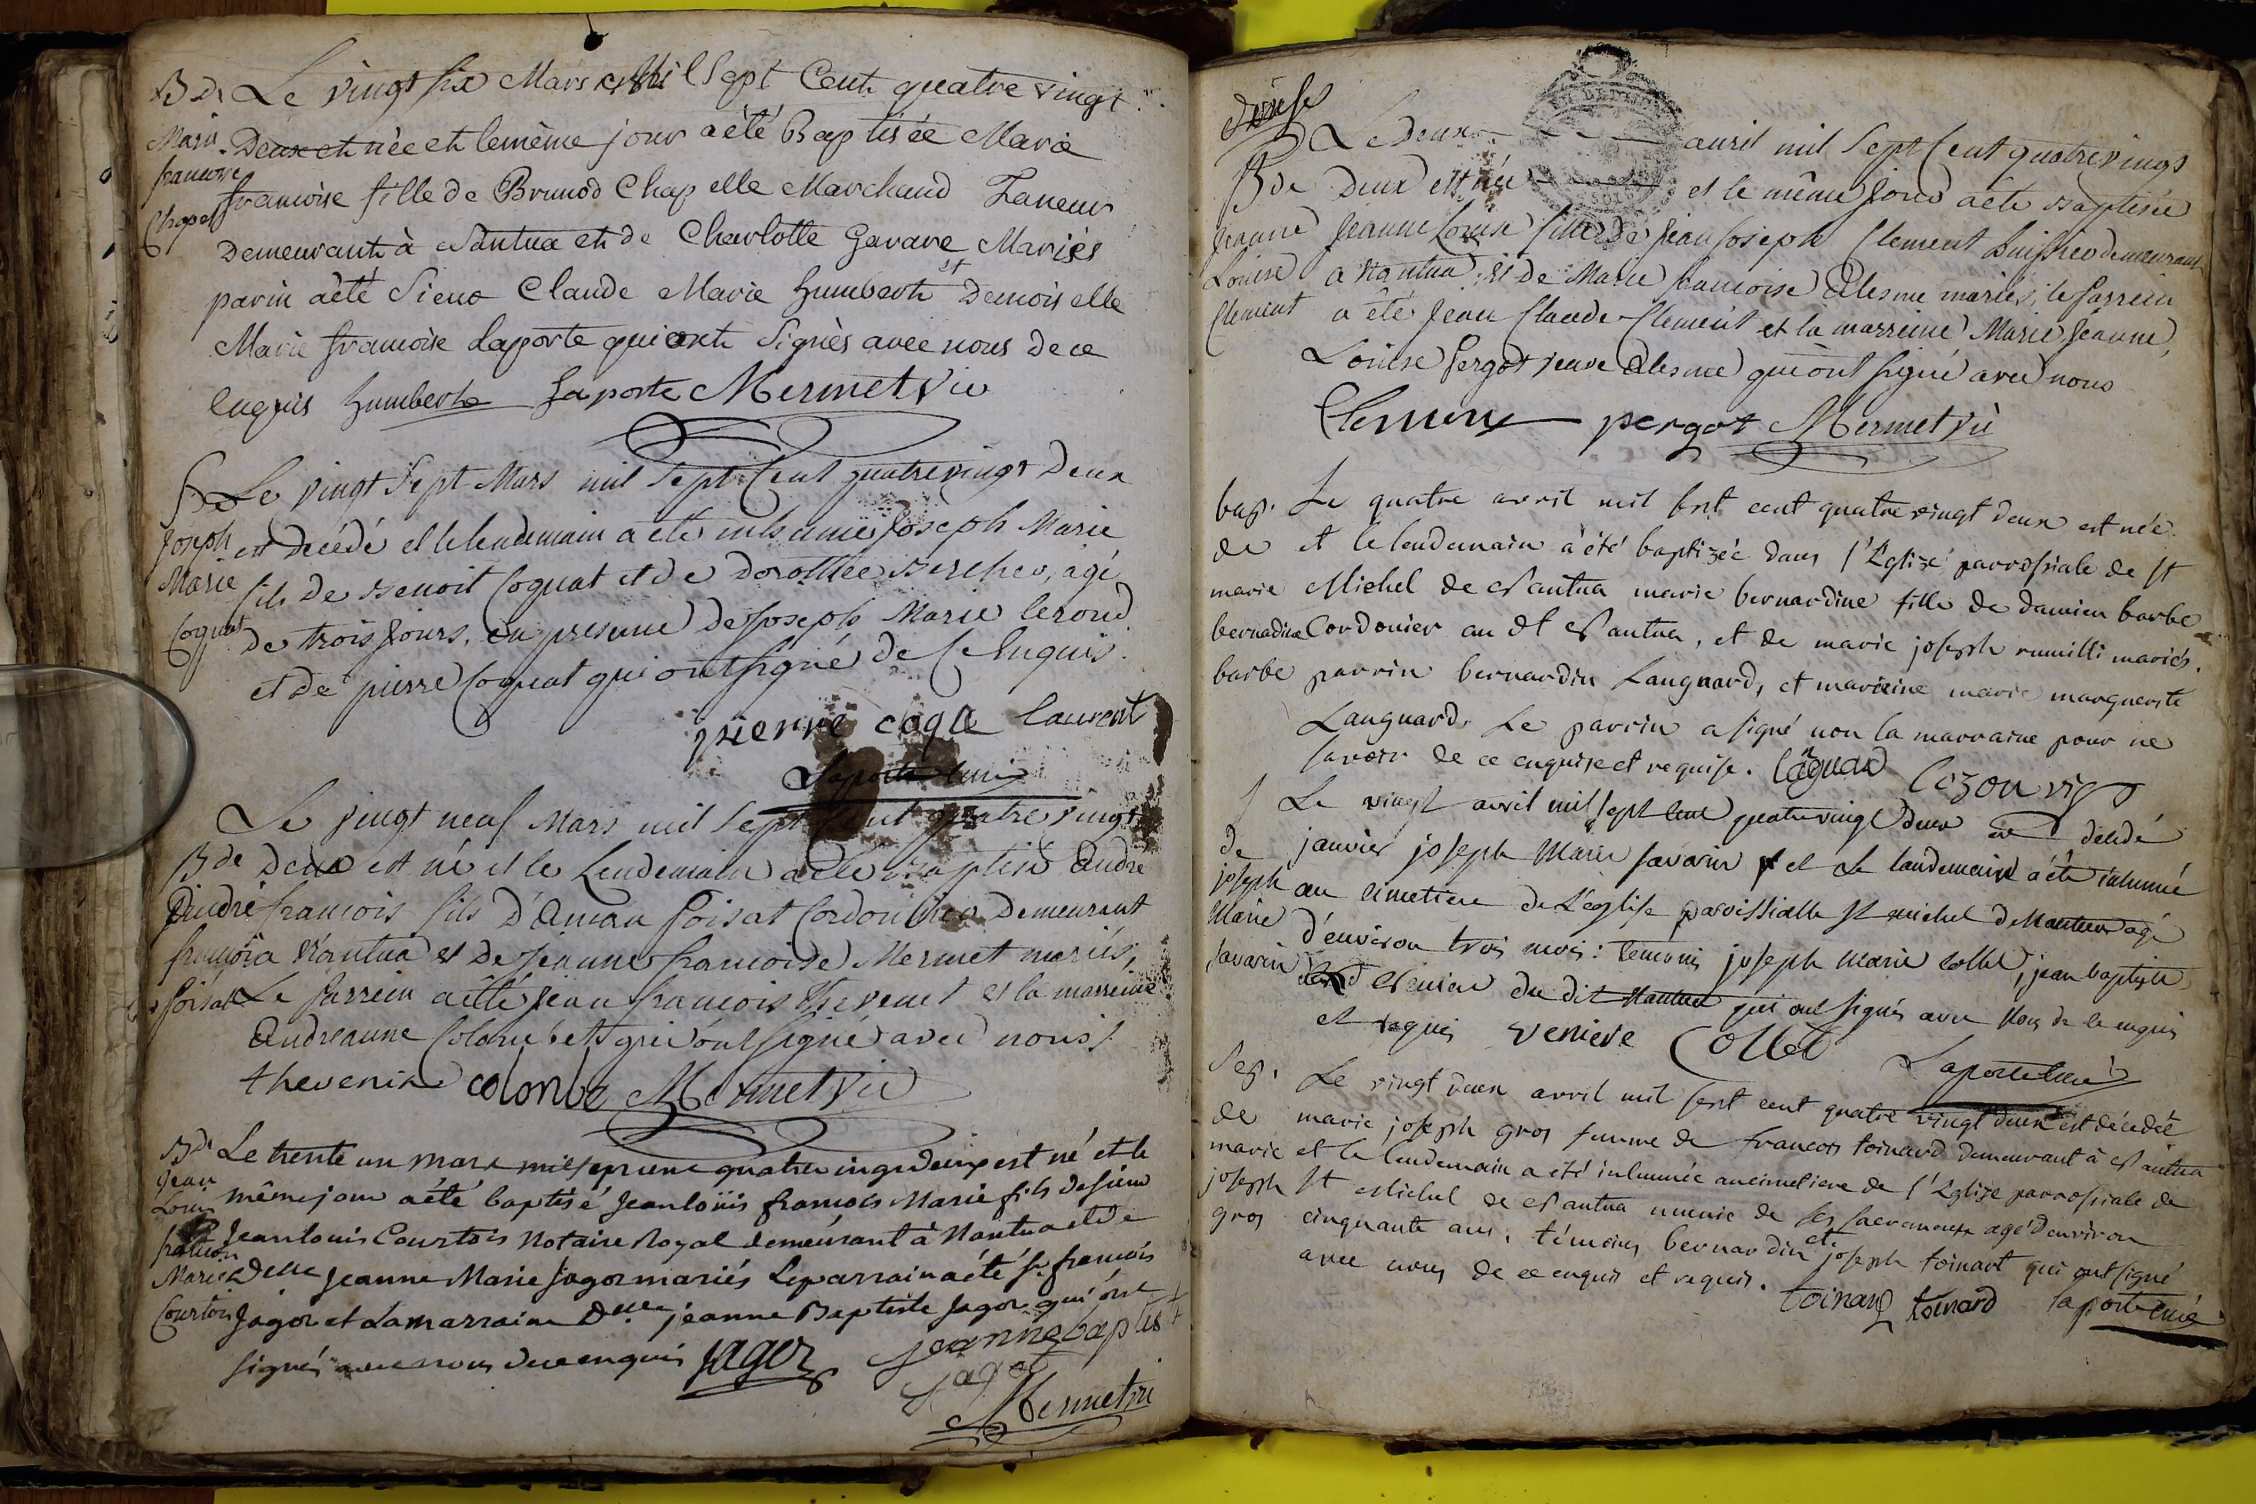 B de Le vingt six Mars Mil Sept Cent quatre vingt
Deux est née et lemême jour aété Baptisée Marie
Marie francoise Chapel
francoise fille de Brunod Chapelle Marchand Taneur
Demeurant à Nantua et de Charlotte Gavare Mariés
parin aété Sieur Claude Marie humbert et Demoiselle
Marie francoise Laporte qui ont Signès avec nous de ce
enquis humbert Laporte Mermet Vic
S Le vingt Sept Mars mil Sept Cent quatrevingt Deux
Joseph Marie Coquat
est Décédé et le lendemain a été inhumé Joseph Marie
fils de Benoit Coquat et de Dorothée Bercher, agé
de trois Jours, en presence de Joseph Marie
et de pierre Coquat qui ont signé de Ce Enquis.
pierre coqa laurent
Laporte curé
Le vingt neuf Mars mil Sept Cent quatre vingt
B de Deux est né et le Lendemain aété Baptisé André
André francois poisat
francois fils d'Aman poisat Cordonnier Demeurant
a Nantua et de Jeanne francoise Mermet mariés,
Le parrein aété Jean francois Thevenet et la marreine
Andreanne Colombet qui ont signé avec nous.
thevenin colonbe Mermet Vic
B de Le trente un mars mil sept cent quatre vingt deux est né et le
Jean Louis francois Marie Courtois
même jour aété baptisé Jean loüis francois Marie fils de sieur
Jean louis Courtois Notaire Royal demeurant à Nantua et de
Delle Jeanne Marie Jagor mariés Leparrain aété sr. francois
Jagor et Lamarraine Delle jeanne Baptiste Jagor qui ont
signés avec nous de ce enquis Jagor Jeanne baptist
Jagor
Mermet vic
Le Deux avril mil Sept Cent quatrevingt
B de Deux est née et le même jour aété Baptisée
Jeanne Louise Clement
Jeanne Louise fille de Jean Joseph Clement huissier demeurant
a Nantua, et de Marie francoise Alesme mariés, le parrein
a été Jean Claude Clement et la marreine Marie Jeanne
Louise pergot veuve Alesme qui ont signé avec nous
Clement pergot Mermet Vic
bap. Le quatre avril mil sept cent quatre vingt deux est née
de marie bernadine barbe
et le lendemain a été baptizée dans l'Eglize parrossiale de St
Michel de Nantua marie bernardine fille de damien barbe
Cordonier au dt Nantua, et de marie joseph rumilli mariés.
parrin bernardin Languard, et mareine marie marguerite
Languard. Le parrin a signé non la marraine pour ne
savoir de ce enquise et requise. Languard Cozon vic
S Le vingt avril mil sept cent quatre vingt deux est décédé
de joseph Marie savarin
janvier joseph Marie savarin et le landemain a été inhumé
au cimetiere de L'eglise paroissialle St michel de Nantua agé
d'environ trois mois: temoins joseph marie collet, jean baptiste
du dit Nantua qui ont signés avec Nous de ce enquis
et requis veniere Collet Laporte curé
Sep. Le vingt deux avril mil sept cent quatre vingt deux est décedée
de marie joseph gros
marie joseph gros femme de francois toinard demeurant à Nantua
et le lendemain a été inhumée au cimetiere de l'Eglize parrossiale de
St Michel de Nantua munie de ses sacremens agé d'environ
cinquante ans. témoins bernardin et joseph toinart qui ont signé
avec nous de ce enquis et requis. toinard toinard laporte curé